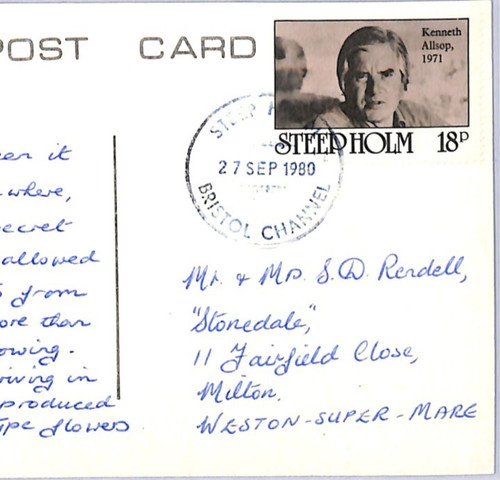 POST CARD
Kenneth
Allsop,
1971
STEEP HOLM 18P
STEEP
27 SEP 1980
BRISTOL CHANNEL
it
where,
secret
allowed
from
ore than
owing.
iving in
produced
ipe flowers
Mr. & Mrs. S.D. Rendell,
"Stonedale",
11 Fairfield Close,
Milton,
WESTON-SUPER-MARE